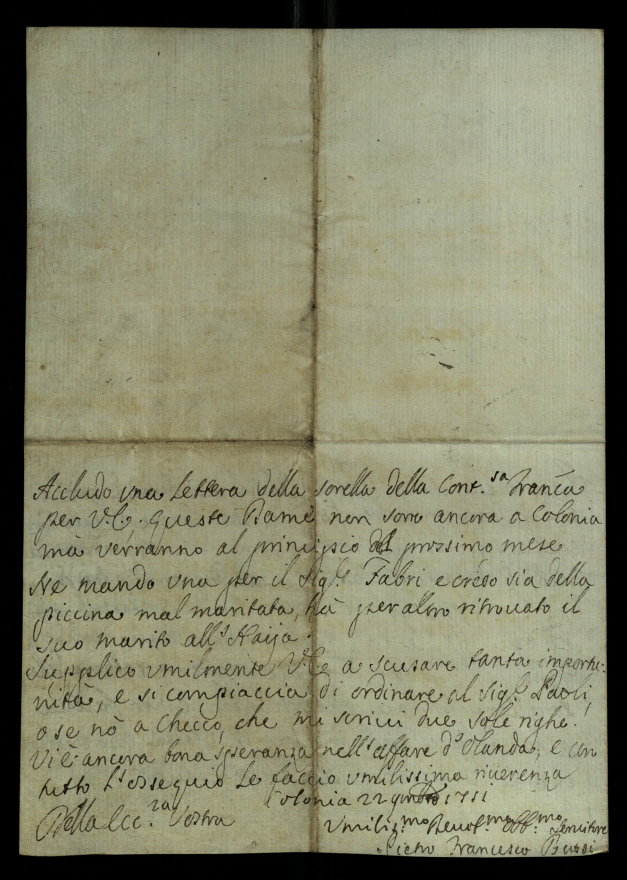 Accludo una Lettera della sorella della Cont.sa Franca
per V.E. queste Dame non sono ancora a Colonia
mà verranno al principio del prossimo mese
Ne mando una per il Sigr. Fabri e credo sia della
piccina mal maritata, hà per altro ritrovato il
suo marito all'Haija.
Supplico umilmente V.E. a scusare tanta importu-
nità, e si compiaccia di ordinare al Sigr. Paoli,
o se nò a Checco, che mi scrivi due sole righe.
Vi è ancora bona speranza nell'affare d'Olanda; e con
tutto l'ossequio Le faccio umilissima riverenza
Colonia 22 1711
Della Ecc.za Vostra
Umiliss.mo Devot.mo Obb.mo Servitore
Pietro Francesco